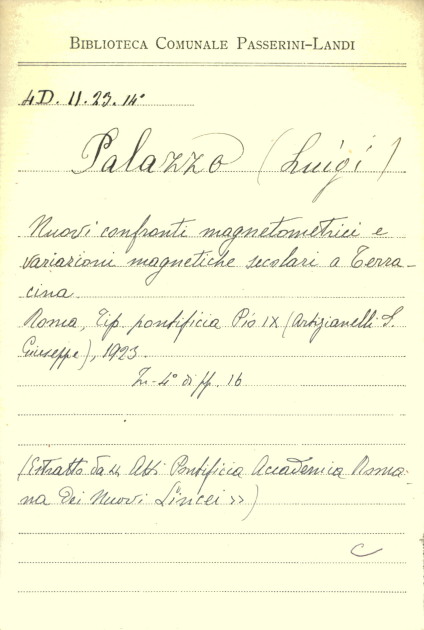 BIBLIOTECA COMUNALE PASSERINI-LANDI
4D. II. 23. 14°
Palazzo (Luigi)
Nuovi confronti magnetometrici e
variazioni magnetiche secolari a Terra-
cina.
Roma, Tip. pontificia Pio IX (Artigianelli S.
Giuseppe), 1923.
In-4° di ff. 16
(Estratto da « Atti Pontificia Accademica Roma-
na dei Nuovi Lincei »)
C